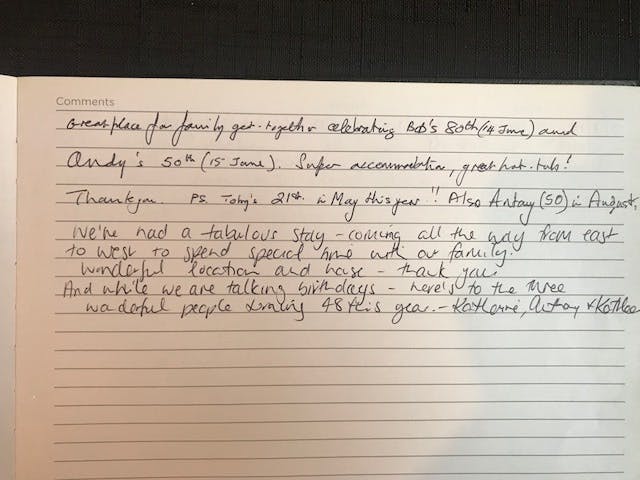 Comments
Great place for family get-together celebrating Bob's 80th (14 June) and
Andy's 50th (15 June). Super accommodation, great hot-tub!
Thankyou. PS. Toby's 21st. in May this year!! Also Antay (50) in August,
We've had a fabulous stay - coming all the way from east
to west to spend special time with our family.
Wonderful location and house - thank you.
And while we are talking birthdays - here's to the three
wonderful people turning 48 this year. - Katherine, &